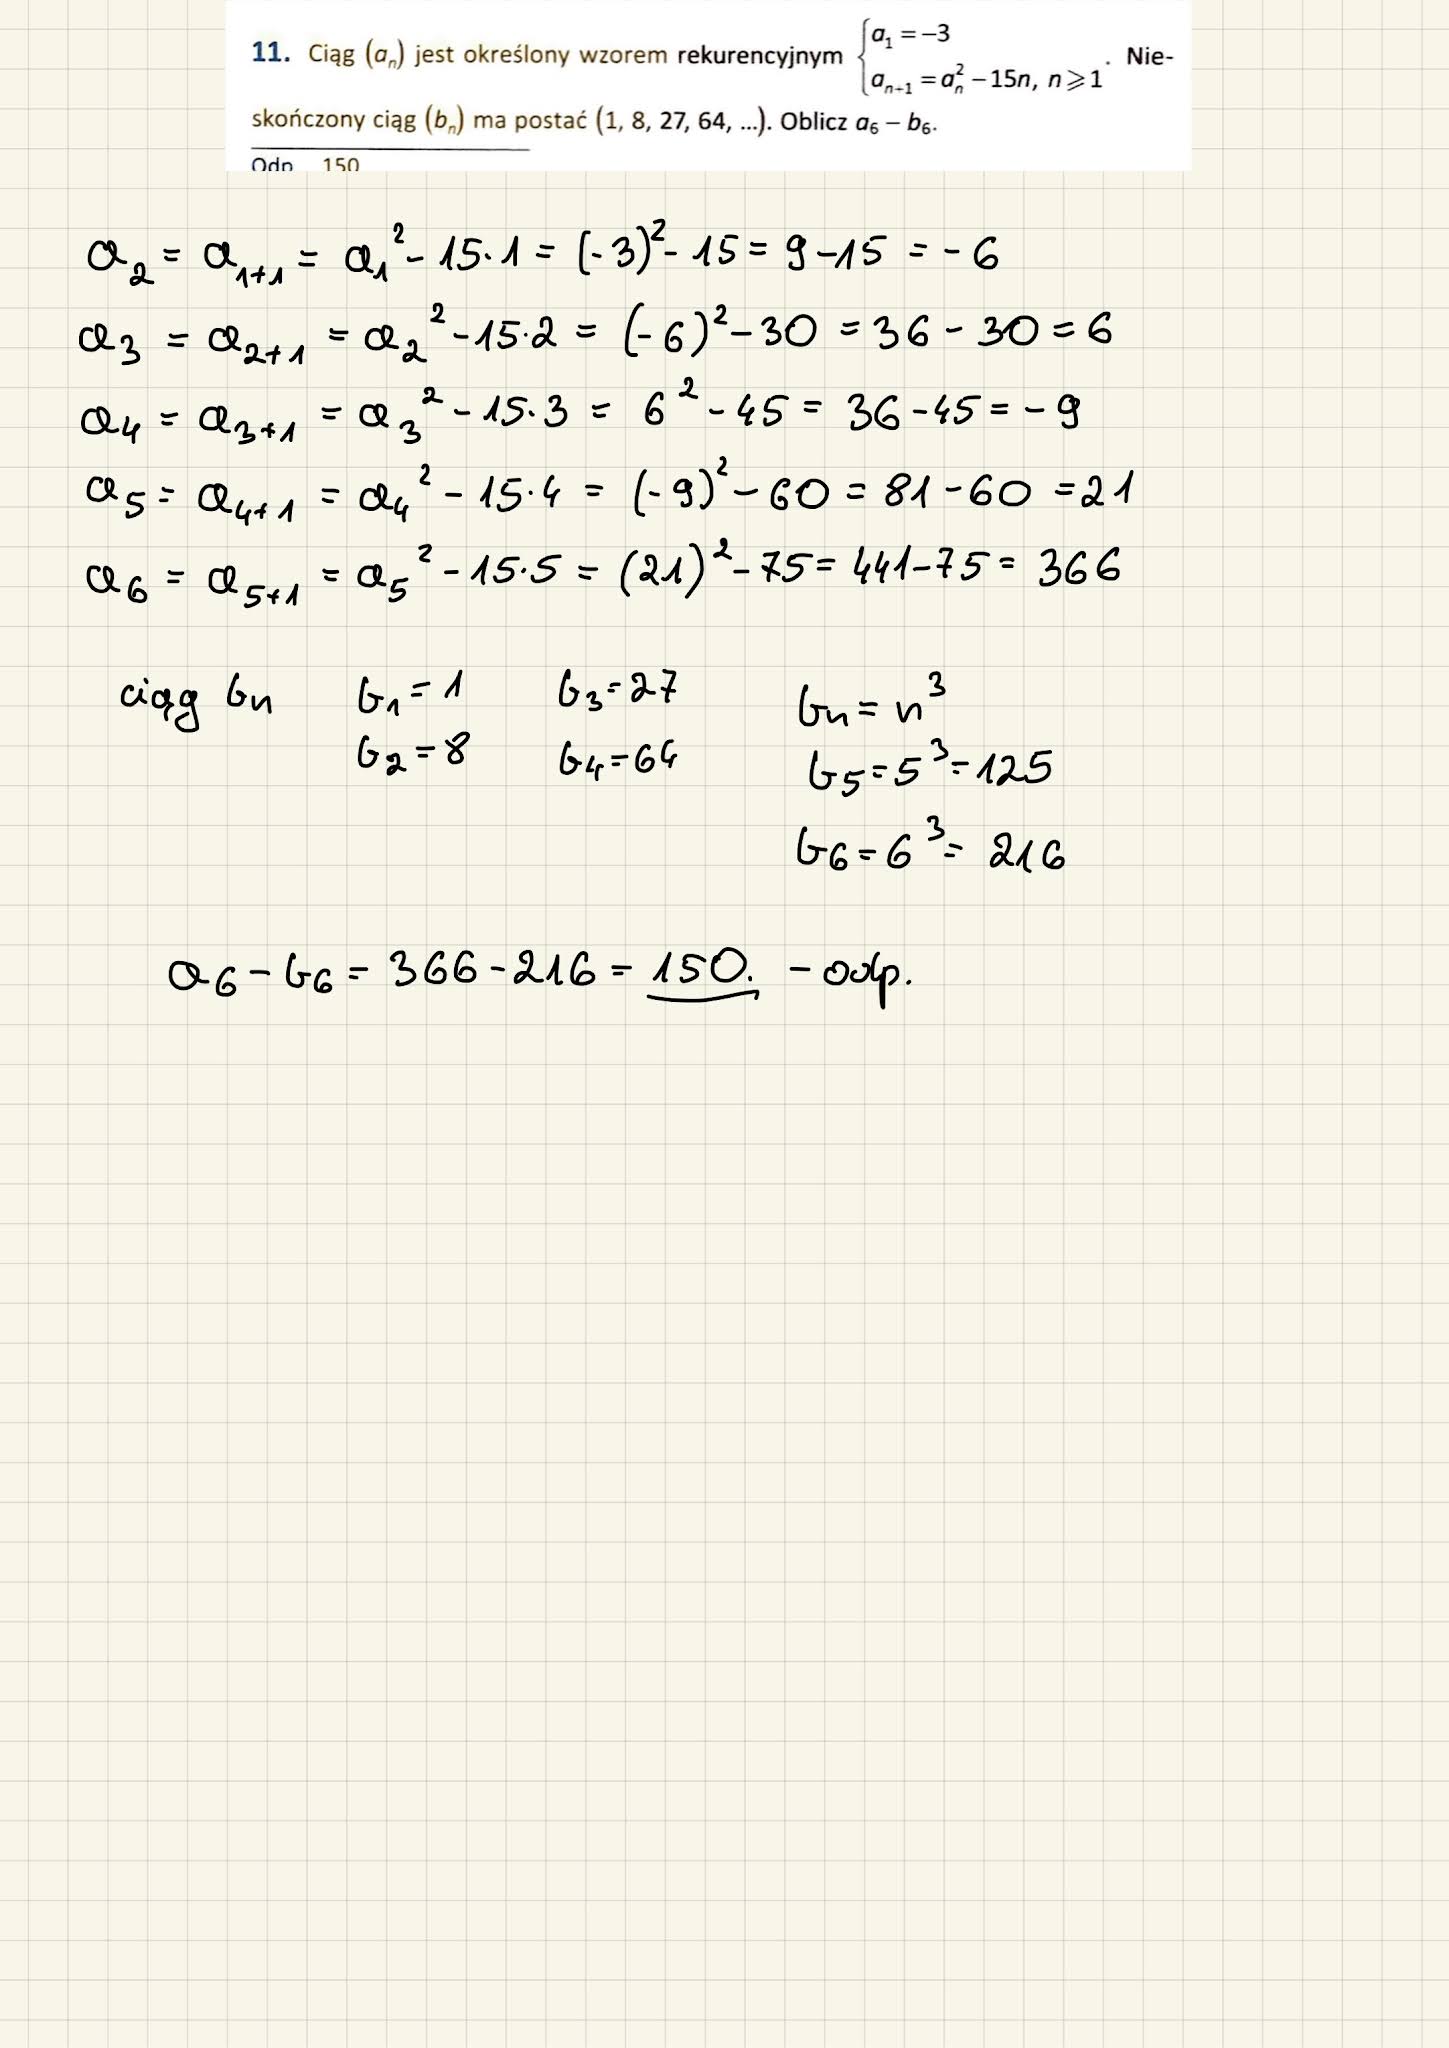 11. Ciąg (aₙ) jest określony wzorem rekurencyjnym { a₁ = −3
aₙ₊₁ = aₙ² − 15n, n ⩾ 1 . Nie-
skończony ciąg (bₙ) ma postać (1, 8, 27, 64, ...). Oblicz a₆ − b₆.
Odp 150
a₂ = a₁₊₁ = a₁² - 15·1 = (-3)² - 15 = 9 - 15 = -6
a₃ = a₂₊₁ = a₂² - 15·2 = (-6)² - 30 = 36 - 30 = 6
a₄ = a₃₊₁ = a₃² - 15·3 = 6² - 45 = 36 - 45 = -9
a₅ = a₄₊₁ = a₄² - 15·4 = (-9)² - 60 = 81 - 60 = 21
a₆ = a₅₊₁ = a₅² - 15·5 = (21)² - 75 = 441 - 75 = 366
ciąg bₙ b₁ = 1 b₃ = 27 bₙ = n³
b₂ = 8 b₄ = 64 b₅ = 5³ = 125
b₆ = 6³ = 216
a₆ - b₆ = 366 - 216 = 150. - odp.